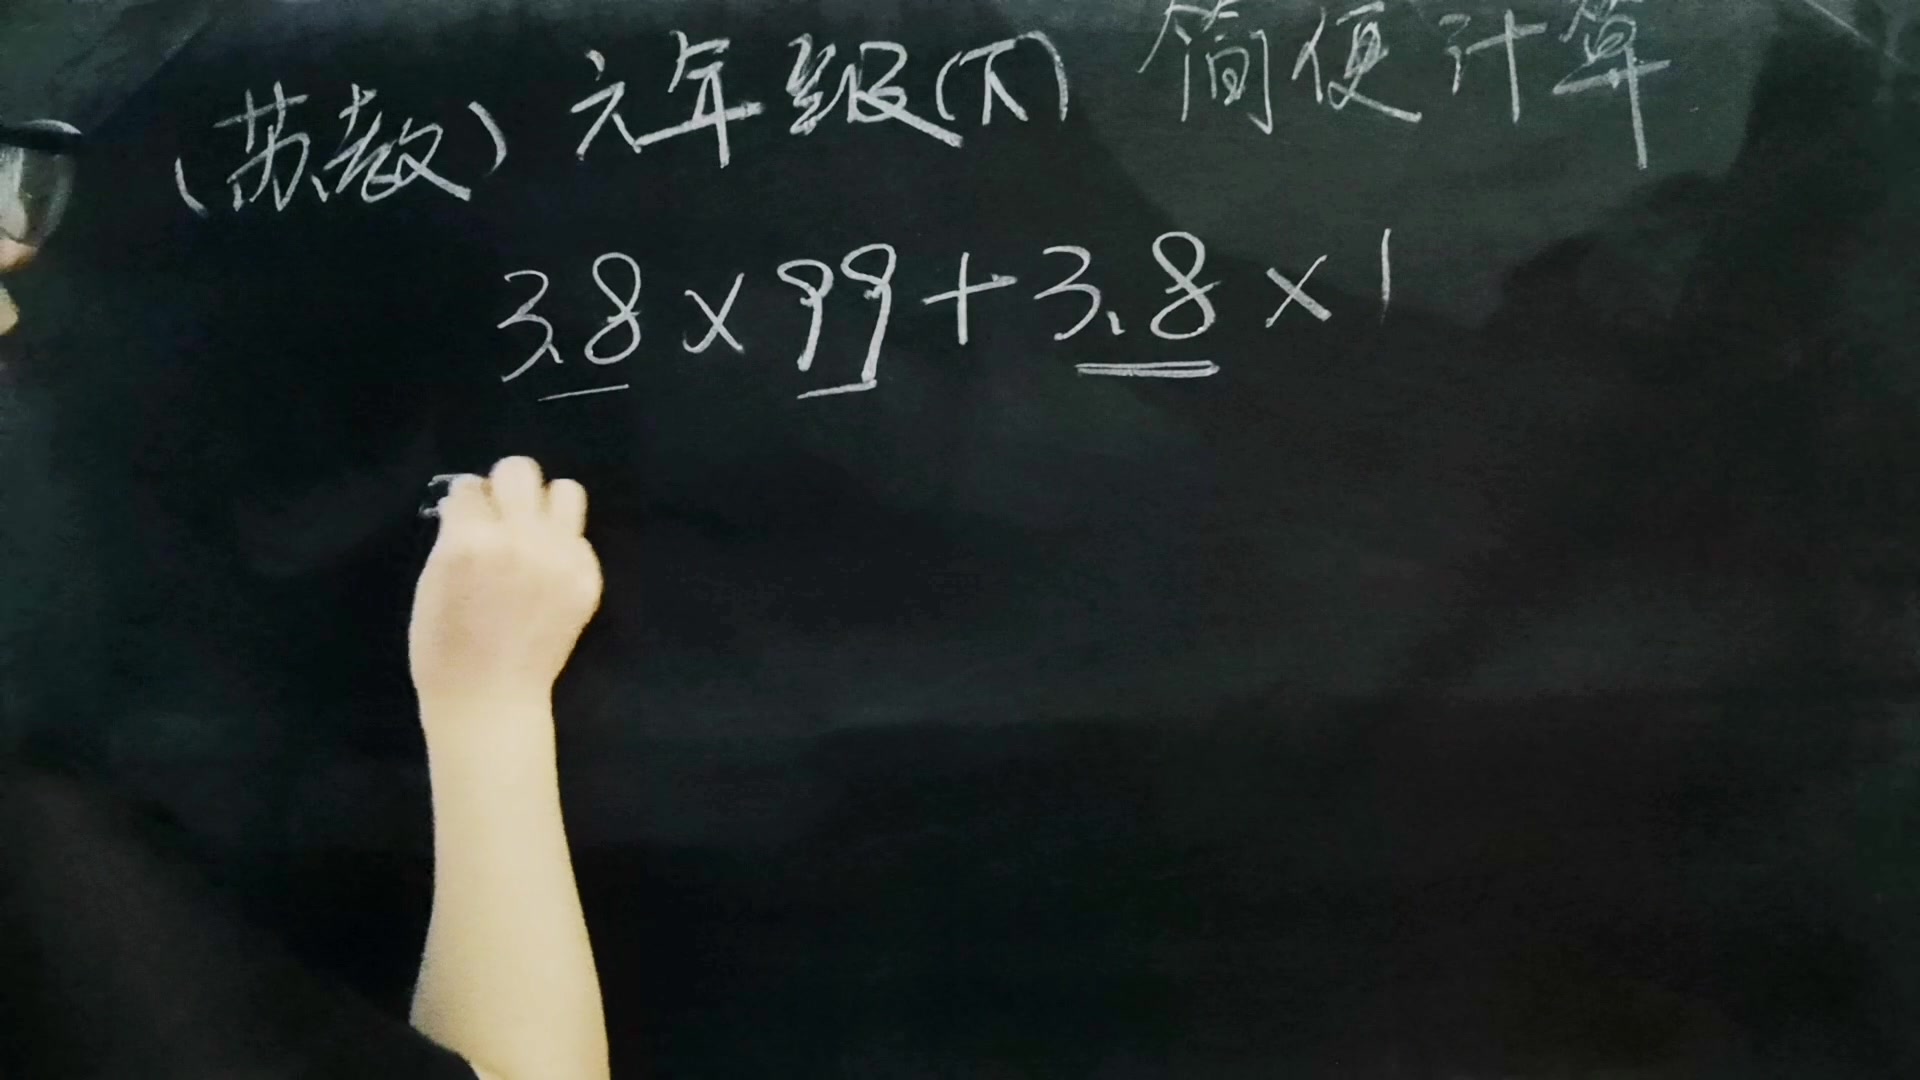 (苏教) 六年级(下) 简便计算
3.8×99+3.8×1